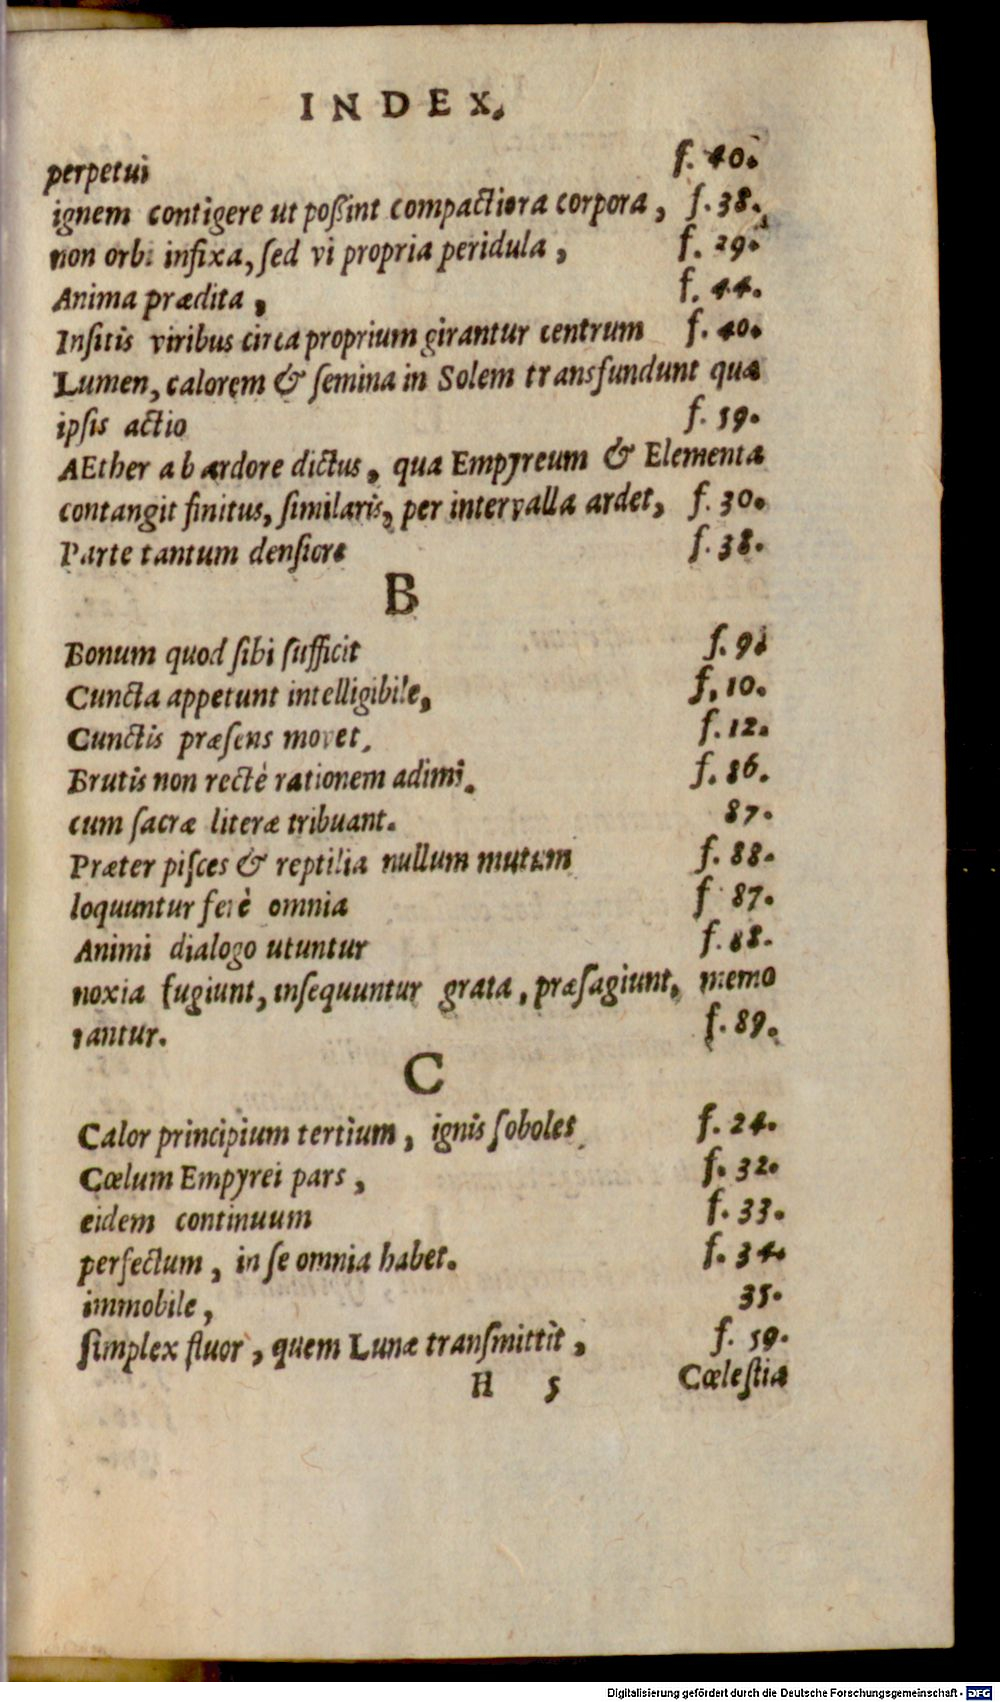 INDEX.
perpetui f. 40.
ignem contigere ut poßint compactiora corpora, f. 38.
non orbi infixa, ſed vi propria peridula, f. 29.
Anima prædita, f. 44.
Inſitis viribus circa proprium girantur centrum f. 40.
Lumen, calorem & ſemina in Solem transfundunt qua
ipſis actio f. 59.
AEther ab ardore dictus, qua Empyreum & Elementa
contangit finitus, ſimilaris, per intervalla ardet, f. 30.
Parte tantum denſiore f. 38.
B
Bonum quod ſibi ſufficit f. 9.
Cuncta appetunt intelligibile, f. 10.
Cunctis præſens movet, f. 12.
Brutis non rectè rationem adimi. f. 86.
cum ſacræ literæ tribuant. 87.
Præter piſces & reptilia nullum mutum f. 88.
loquuntur ferè omnia f 87.
Animi dialogo utuntur f. 88.
noxia fugiunt, inſequuntur grata, præſagiunt, memo
rantur. f. 89.
C
Calor principium tertium, ignis ſoboles f. 24.
Cœlum Empyrei pars, f. 32.
eidem continuum f. 33.
perfectum, in ſe omnia habet. f. 34.
immobile, 35.
ſimplex fluor, quem Lunæ tranſmittit, f. 59.
H 5 Cœleſtia
Digitalisierung gefördert durch die Deutsche Forschungsgemeinschaft - DFG